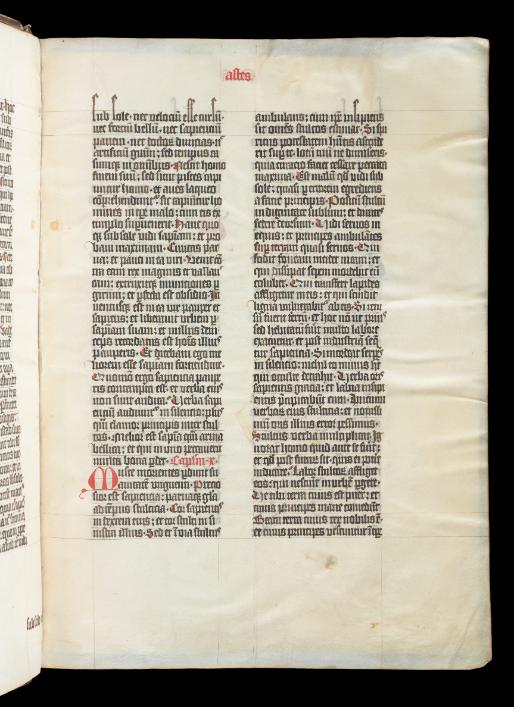 astes
sub sole · nec velociũ esse cursũ ·
nec fortiũ bellũ · nec sapientiũ
panem · nec doctoꝝ divicias · nec
artificũ gr̃am ; sed tempus ca
sumqꝫ in omĩbus · Nescit homo
finem suũ ; sed sicut pisces capi
untur hamo · et aves laqueo
cõprehendunt᷑ · sic capiunt᷑ ho
mines in tp̃e malo ; cum eis ex
templo supervenerit · Hanc quo
qꝫ sub sole vidi sapiam · et pro
bavi maximam · Civitas par
va ; et pauci in ea viri · Venit cõ
tra eam rex magnus et vallavit
eam ; extruxitqꝫ munitiones p
girum ; et pfecta est obsidio · In
ventusqꝫ est in ea vir pauper et
sapiens ; et liberavit urbem p
sapiam suam ; et nullus dein
ceps recordatus est hoĩs illius
pauperis · Et dicebam ego me
liorem esse sapiam fortitudine ·
Quomõ ergo sapiencia paupe
ris contempta est · et verba eius
non sunt audita · Verba sapi
enciũ audiunt᷑ in silencio ; plus
quã clamor principis inter stul
tos · Melior est sapiã quã arma
bellica ; et qui in uno peccaverit
multa bona pdet · Caplm · x ·
Musce morientes pdunt sua
vitatem unguenti · Precio
sior est sapiencia ; parva et ad
tempus stulticia · Cor sapientis
in dextera eius ; et cor stulti in si
nistra illius · Sed et ĩ via stultus
ambulans ; cum ipẽ insipiens
sit omẽs stultos estimat · Si spi
ritus potestatem habẽtis ascende
rit sup te · locũ tuũ ne dimiseris ·
quia curacio faciet cessare peccata
maxima · Est malũ qd vidi sub
sole ; quasi p errorem egrediens
a facie principis · Positũ stultũ
in dignitate sublimi ; et divites
sedere deorsum · Vidi servos in
equis ; et principes ambulãtes
sup terram quasi servos · Qui
fodit foveam incidet in eam ; et
qui dissipat sepem mordebit eũ
coluber · Qui transfert lapides
affligetur in eis ; et qui scindit
ligna vulnerabit᷑ ab eis · Si retu
sũ fuerit ferrũ · et hoc nõ ut prius
sed hebetatũ fuit multo labore
exacuetur · et post industriã seq̃
tur sapiencia · Si mordeat serpẽs
in silencio · nichil eo minus ht
qui occulte detrahit · Verba oris
sapientis gratia ; et labia insipi
entis pcipitabũt eum · Inicium
verboꝝ eius stulticia ; et novissi
mũ oris illius error pessimus ·
Stultus verba multiplicat · Ig
norat homo quid ante se fuit ;
et qd post futurũ sit · quis ei poterit
indicare · Labor stultoꝝ affliget
eos ; qui nesciũt in urbẽ pgere ·
Ve tibi terra cuius rex puer ẽ ; et
cuius principes mane comedũt ·
Beata terra cuius rex nobilis ẽ ·
et cuius principes vescuntur ĩ tp̃e